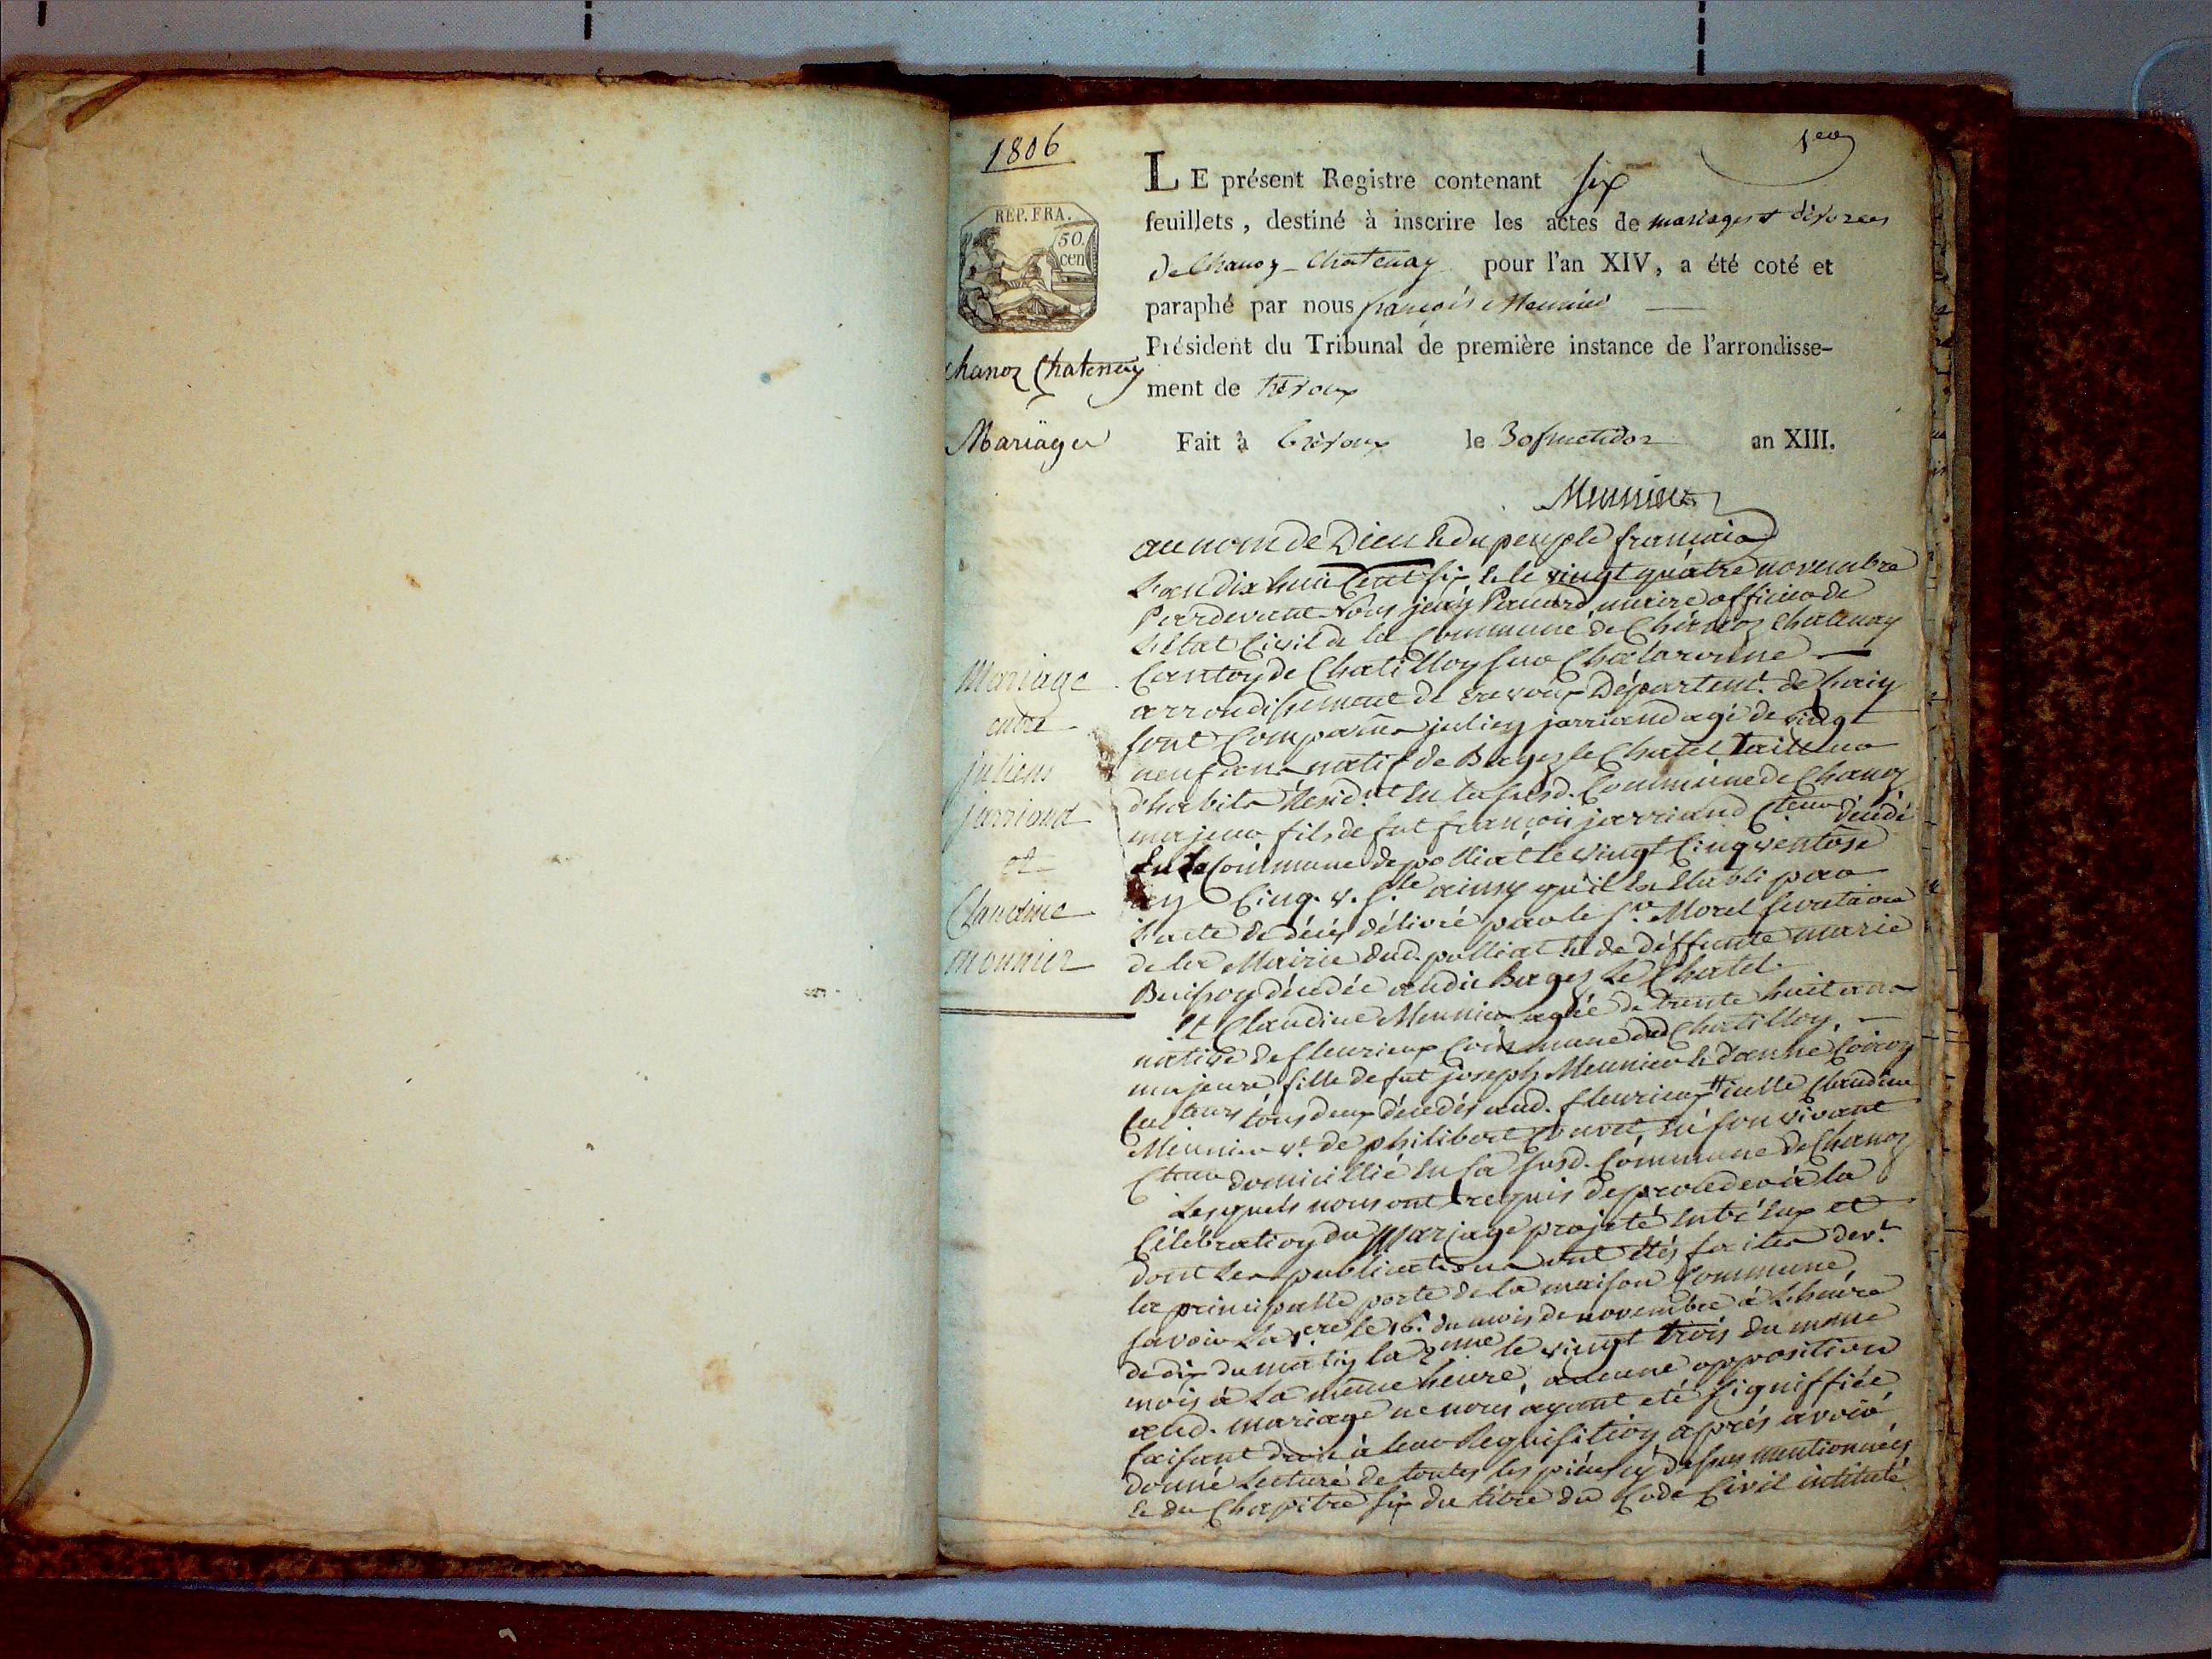 1806
1er
REP. FRA.
50.
cen
LE présent Registre contenant six
feuillets, destiné à inscrire les actes de mariages & divorces
de Chanoz-Chatenay pour l'an XIV, a été coté et
paraphé par nous françois Meunier
Président du Tribunal de première instance de l'arrondisse-
ment de trévoux
Fait à trévoux le 30 fructidor an XIII.
Meunier
chanoz Chatenay
Mariages
Mariage
entre
juliens
jarriand
et
Claudine
mounier
au nom de Dieu & du peuple français
L'an dix huit Cent six, & le vingt quatre novembre
Pardevant Nous jean Panard, maire officier de
L'Etat Civil de la Commune de Chanoz Chatenay
Canton de Chatillon sur Chalaronne
arrondissement de trevoux Département. de L'ain
sont Comparus julien jarriand agé de vingt
neuf ans natif de Bagez le Chatel Tailleur
d'habits Resid.nt en la susd. Commune de Chanoz
majeur fils de fut françois jarriand Cteur décédé
En la Commune de polliat le vingt Cinq ventose
an Cinq. v. s.le ainsy qu'il est Etabli par
L'acte de décés délivré par le sr. Morel secretaire
de la Mairie dud. polliat & de deffunte marie
Buisson décédée audit Bagez le Chatel.
Et Claudine Meunier agée de trente huit ans
native de fleurieux Commune dud Chatillon,
majeure fille de fut joseph Meunier & d'anne
Culteurs tous deux décédés aud. fleurieux icelle Claudine
Meunier ve. de philibert en son vivant
Cteur domicillié en la susd. Commune de Chanoz
Lesquels nous ont requis de proceder à la
Célébration du Mariage projeté entre Eux et
dont les publications ont étés faites devt.
la principalle porte de la maison Commune,
savoir La 1ere le 16. du mois de novembre à L'heure
de dix du matin la 2me le vingt trois du meme
mois à La meme heure, aucune opposition
aud. mariage ne nous ayant eté signiffiée
faisant droit à leur Requisition après avoir
donné Lecture de toutes les pièces cy dessus mentionnées
& du Chapitre six du titre du Code Civil intitulé